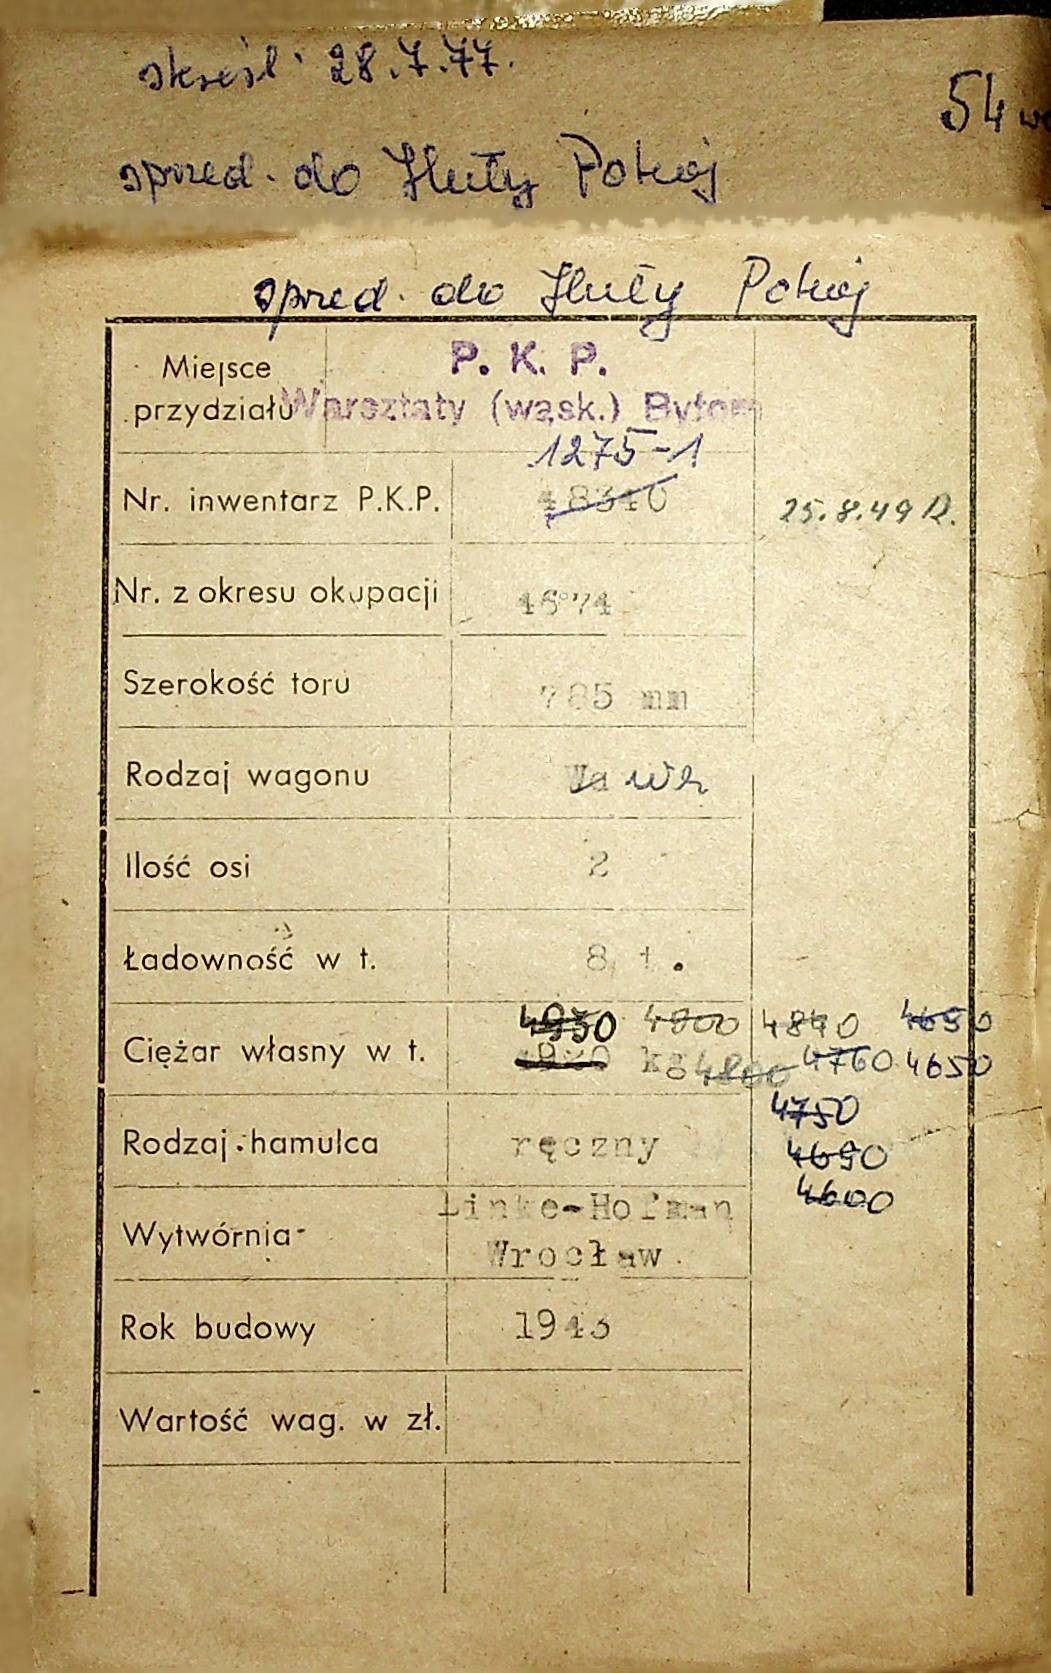 skreśl. 28.7.77.
54
sprzed. do Huty Pokój
sprzed. do Huty Pokój
Miejsce przydziału
P. K. P.
Warsztaty (wąsk.) Bytom
1275-1
Nr. inwentarz P.K.P. 48340 25.8.49 R.
Nr. z okresu okupacji
Szerokość toru 785 mm
Rodzaj wagonu Wa
Ilość osi 2
Ładowność w t. 8 t.
4950 4900 4840 4650
Ciężar własny w t. kg 4800 4760 4650
4750
Rodzaj hamulca ręczny 4690
4600
Wytwórnia Linke-Hofman
Wrocław.
Rok budowy 1943
Wartość wag. w zł.